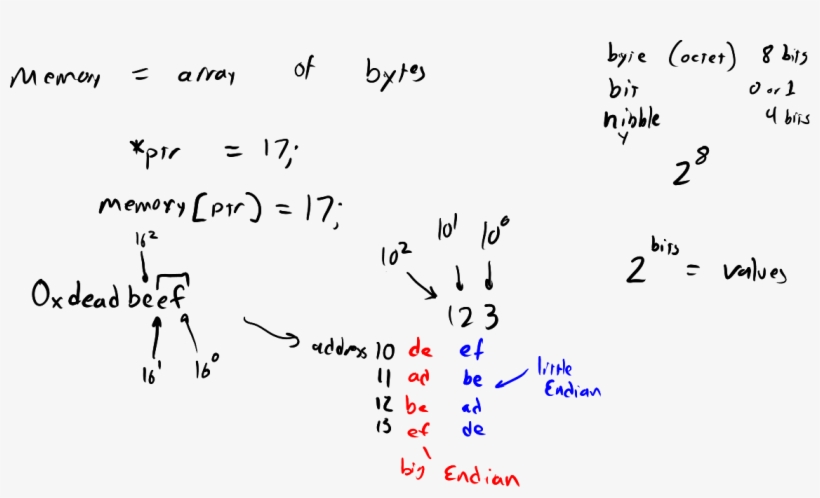 Memory = array of bytes
byte (octet) 8 bits
bit 0 or 1
nibble 4 bits
y
*ptr = 17;
2^8
memory[ptr] = 17;
16^2
10^2 10^1 10^0
2^bits = values
0xdeadbeef
123
16^1 16^0
address 10 de ef
11 ad be
little Endian
12 be ad
13 ef de
big Endian